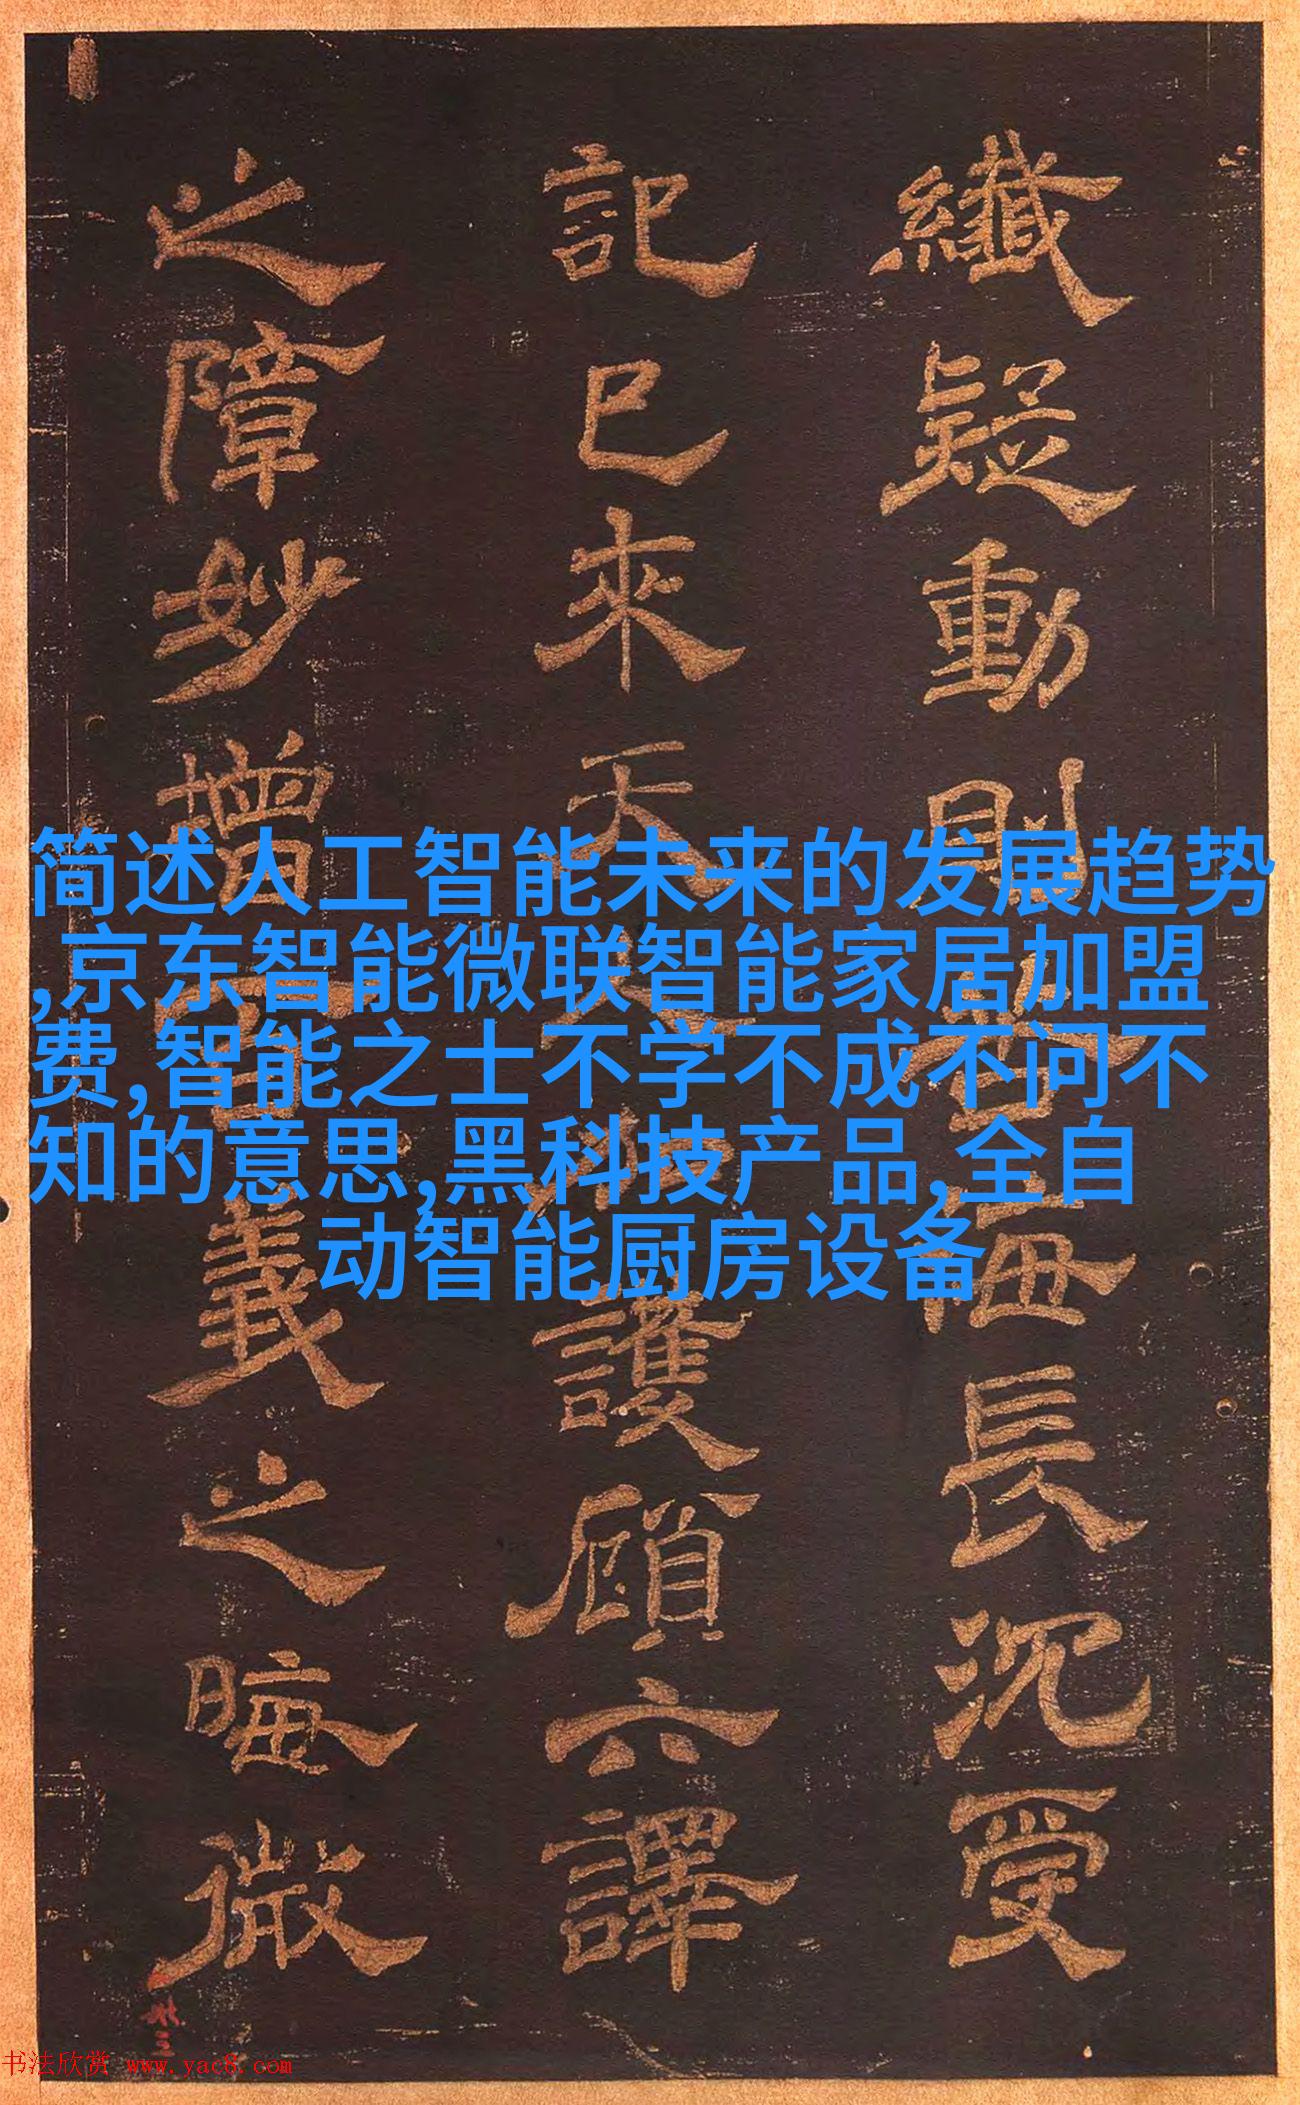 纖疑動則長沉受
記已來天護顧六譯
之障妙增義之晦微
简述人工智能未来的发展趋势
,京东智能微联智能家居加盟
费,智能之士不学不成不问不
知的意思,黑科技产品,全自
动智能厨房设备
书法欣赏 www.yac8.com